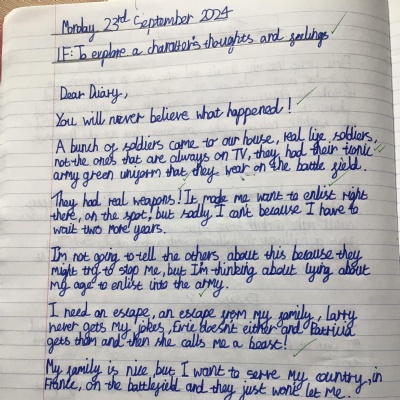 Monday 23rd September 2024
IF: To explore a character's thoughts and feelings
Dear Diary,
You will never believe what happened!
A bunch of soldiers came to our house, real life soldiers,
not the ones that are always on TV, they had their iconic
army green uniform that they wear on the battle field.
They had real weapons! It made me want to enlist right
there, on the spot, but sadly I can't because I have to
wait two more years.
I'm not going to tell the others about this because they
might try to stop me, but I'm thinking about lying about
my age to enlist into the army.
I need an escape, an escape from my family, Larry
never gets my jokes, Evie doesn't either and Patricia
gets them and then she calls me a beast!
My family is nice, but I want to serve my country, in
France, on the battlefield and they just won't let me.